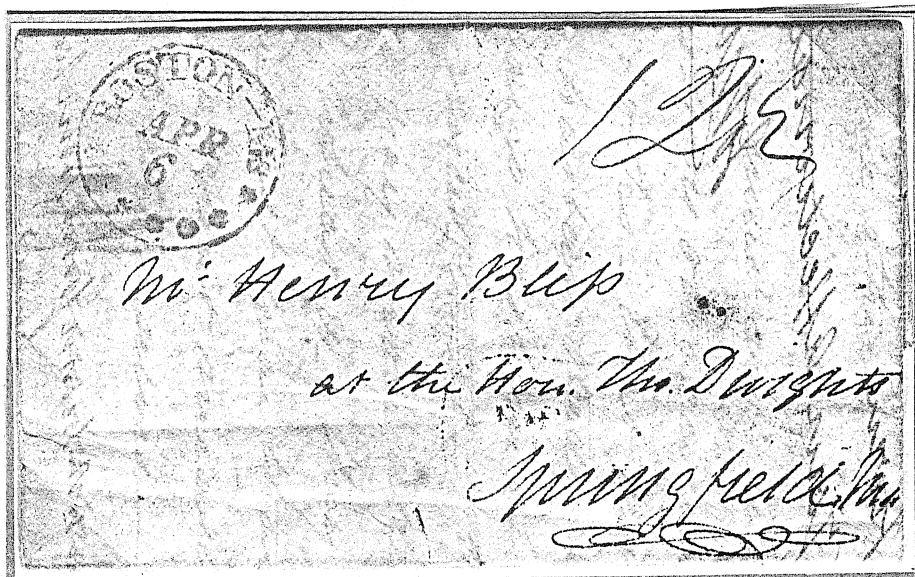 BOSTON-MS
APR
6
12½
Mr. Henry Bliſs
at the Hon. Tho. Dwights
Springfield, Ms